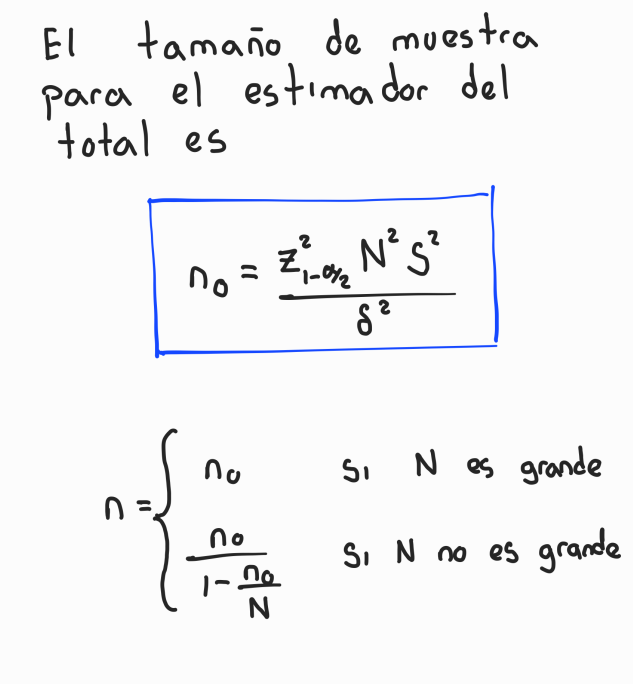 El tamaño de muestra
para el estimador del
total es
n₀ = z²₁₋α/₂ N² S² / δ²
n = { n₀ si N es grande
n₀ / (1 - n₀/N) si N no es grande